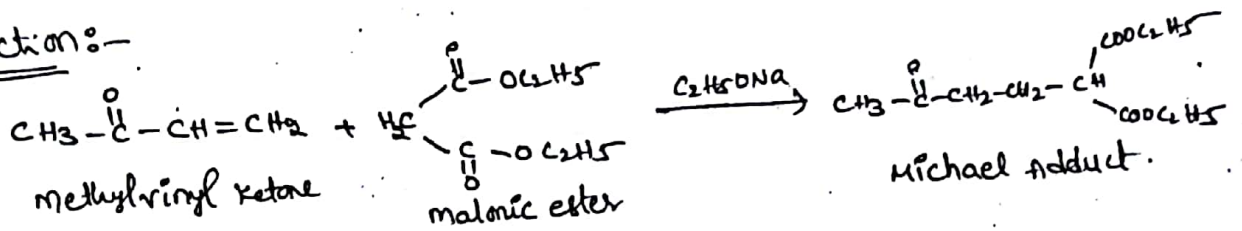 ction:-
CH3-C(=O)-CH=CH2 + H2C(C(=O)-OC2H5)(C(=O)-OC2H5) C2H5ONa → CH3-C(=O)-CH2-CH2-CH(COOC2H5)(COOC2H5)
methylvinyl ketone malonic ester Michael Adduct.